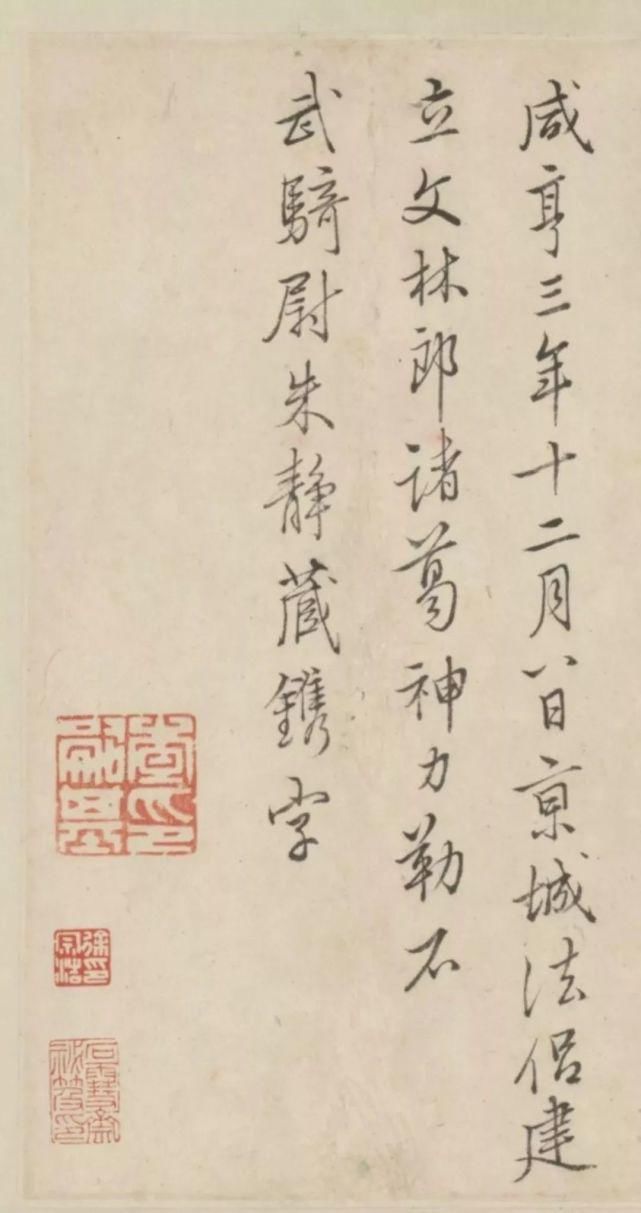 咸亨三年十二月八日京城法侣建
立文林郎诸葛神力勒石
武騎尉朱静藏鐫字
徐宗浩印